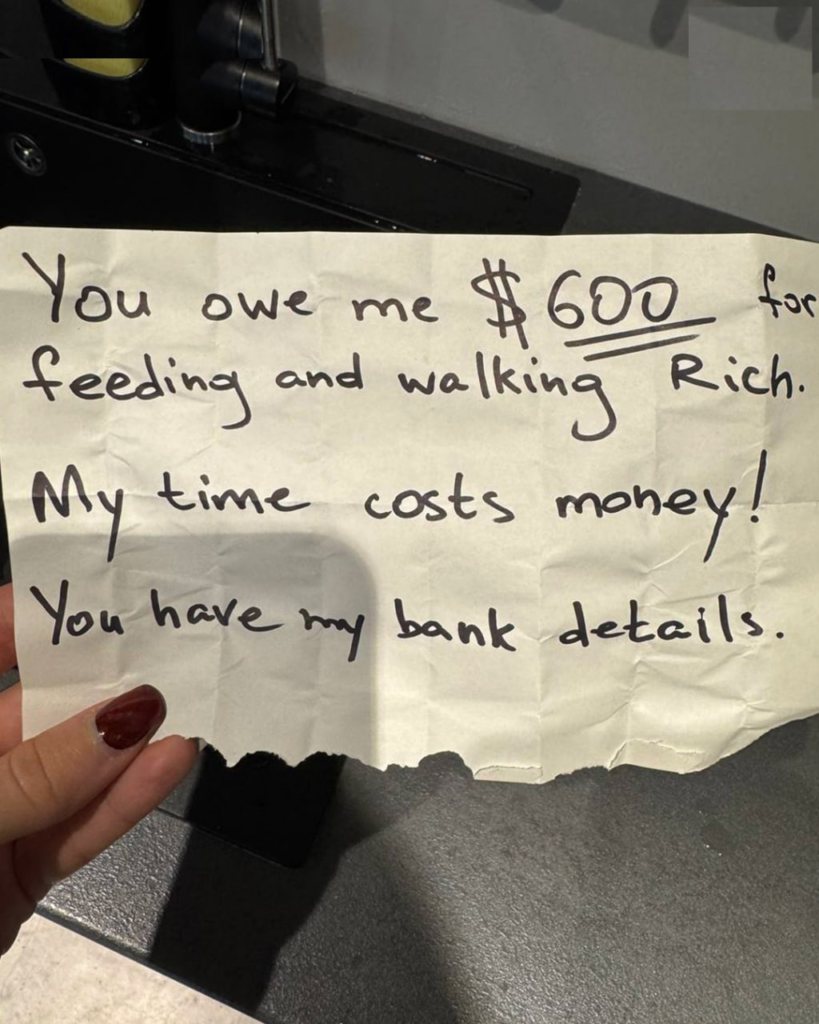 You owe me $600 for
feeding and walking Rich.
My time costs money!
You have my bank details.